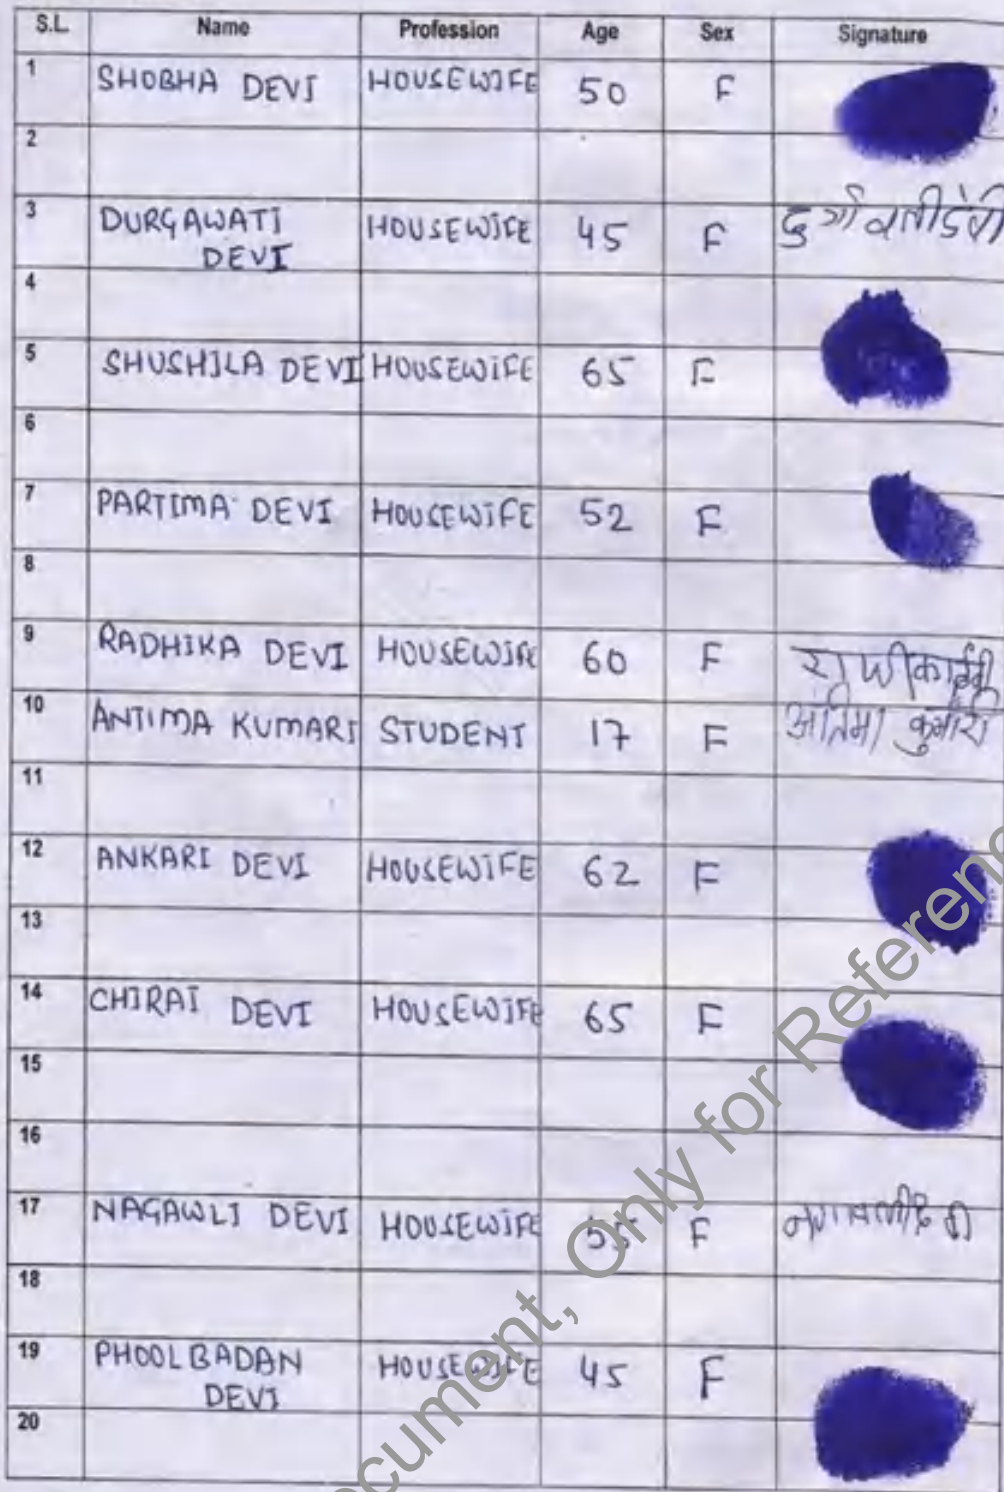 S.L. Name Profession Age Sex Signature
1 SHOBHA DEVI HOUSEWIFE 50 F
2
3 DURGAWATI HOUSEWIFE 45 F
DEVI
4
5 SHUSHILA DEVI HOUSEWIFE 65 F
6
7 PARTIMA DEVI HOUSEWIFE 52 F
8
9 RADHIKA DEVI HOUSEWIFE 60 F
10 ANTIMA KUMARI STUDENT 17 F अंतिमा कुमारी
11
12 ANKARI DEVI HOUSEWIFE 62 F
13
14 CHIRAI DEVI HOUSEWIFE 65 F
15
16
17 NAGAWLI DEVI HOUSEWIFE 55 F
18
19 PHOOLBADAN HOUSEWIFE 45 F
DEVI
20
Document, Only for Reference